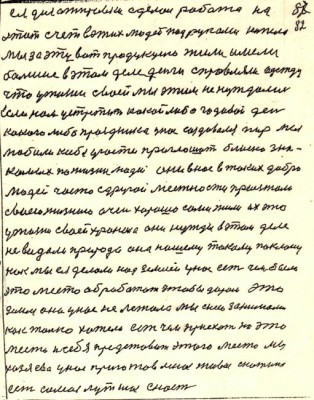 ея должнтвом сделом работа на 82
этот счетваших людей под руками нашол
мы за эту вот продукцию жили имели
больше в этом деле денги справляли одежду
что у жизни своей мы этим не нуждалис
если нам устретит какой либо годовой ден
какого либо праздника унас создавался пир мы
любили к себе угости приглошат близко зна-
комых по жизни людей они все в таких добро
людей часто с другой местности приезжали
своею жизнию очен хорошо сами жили их это
у жизни своей хранила они нужды в этом деле
не видали природа она нашему такому поклону
как мы ея делом над землей унас ест чем было
это место обработат этово даром это
земля она унас не лежала мы ею занимали
как только хотели ест чем приехат на это
место и себя представит этого место мы
хозяева унас приготовлина живая скотина
ест самая лутшая снаст